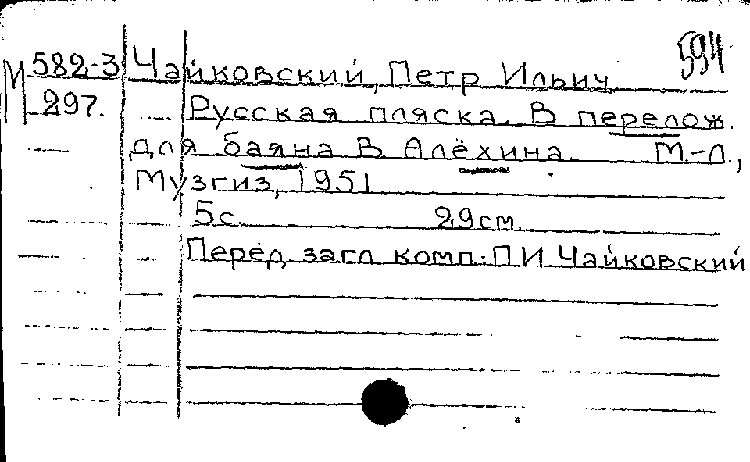 594
М 582-3 Чайковский, Петр Ильич
297. Русская пляска. В перелож.
для баяна В. Алёхина. М.-Л.,
Музгиз, 1951
5с. 29см.
Перед загл. комп.: П.И. Чайковский